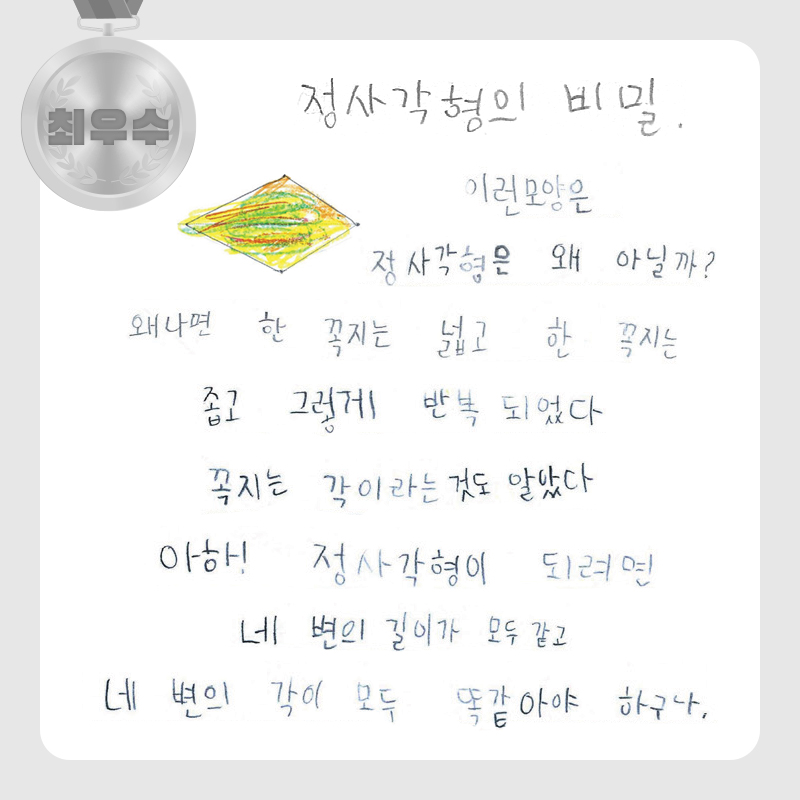 최우수
정사각형의 비밀.
이런모양은
정사각형은 왜 아닐까?
왜나면 한 꼭지는 넓고 한 꼭지는
좁고 그렇게 반복 되었다
꼭지는 각이라는 것도 알았다
아하! 정사각형이 되려면
네 변의 길이가 모두 같고
네 변의 각이 모두 똑같아야 하구나.